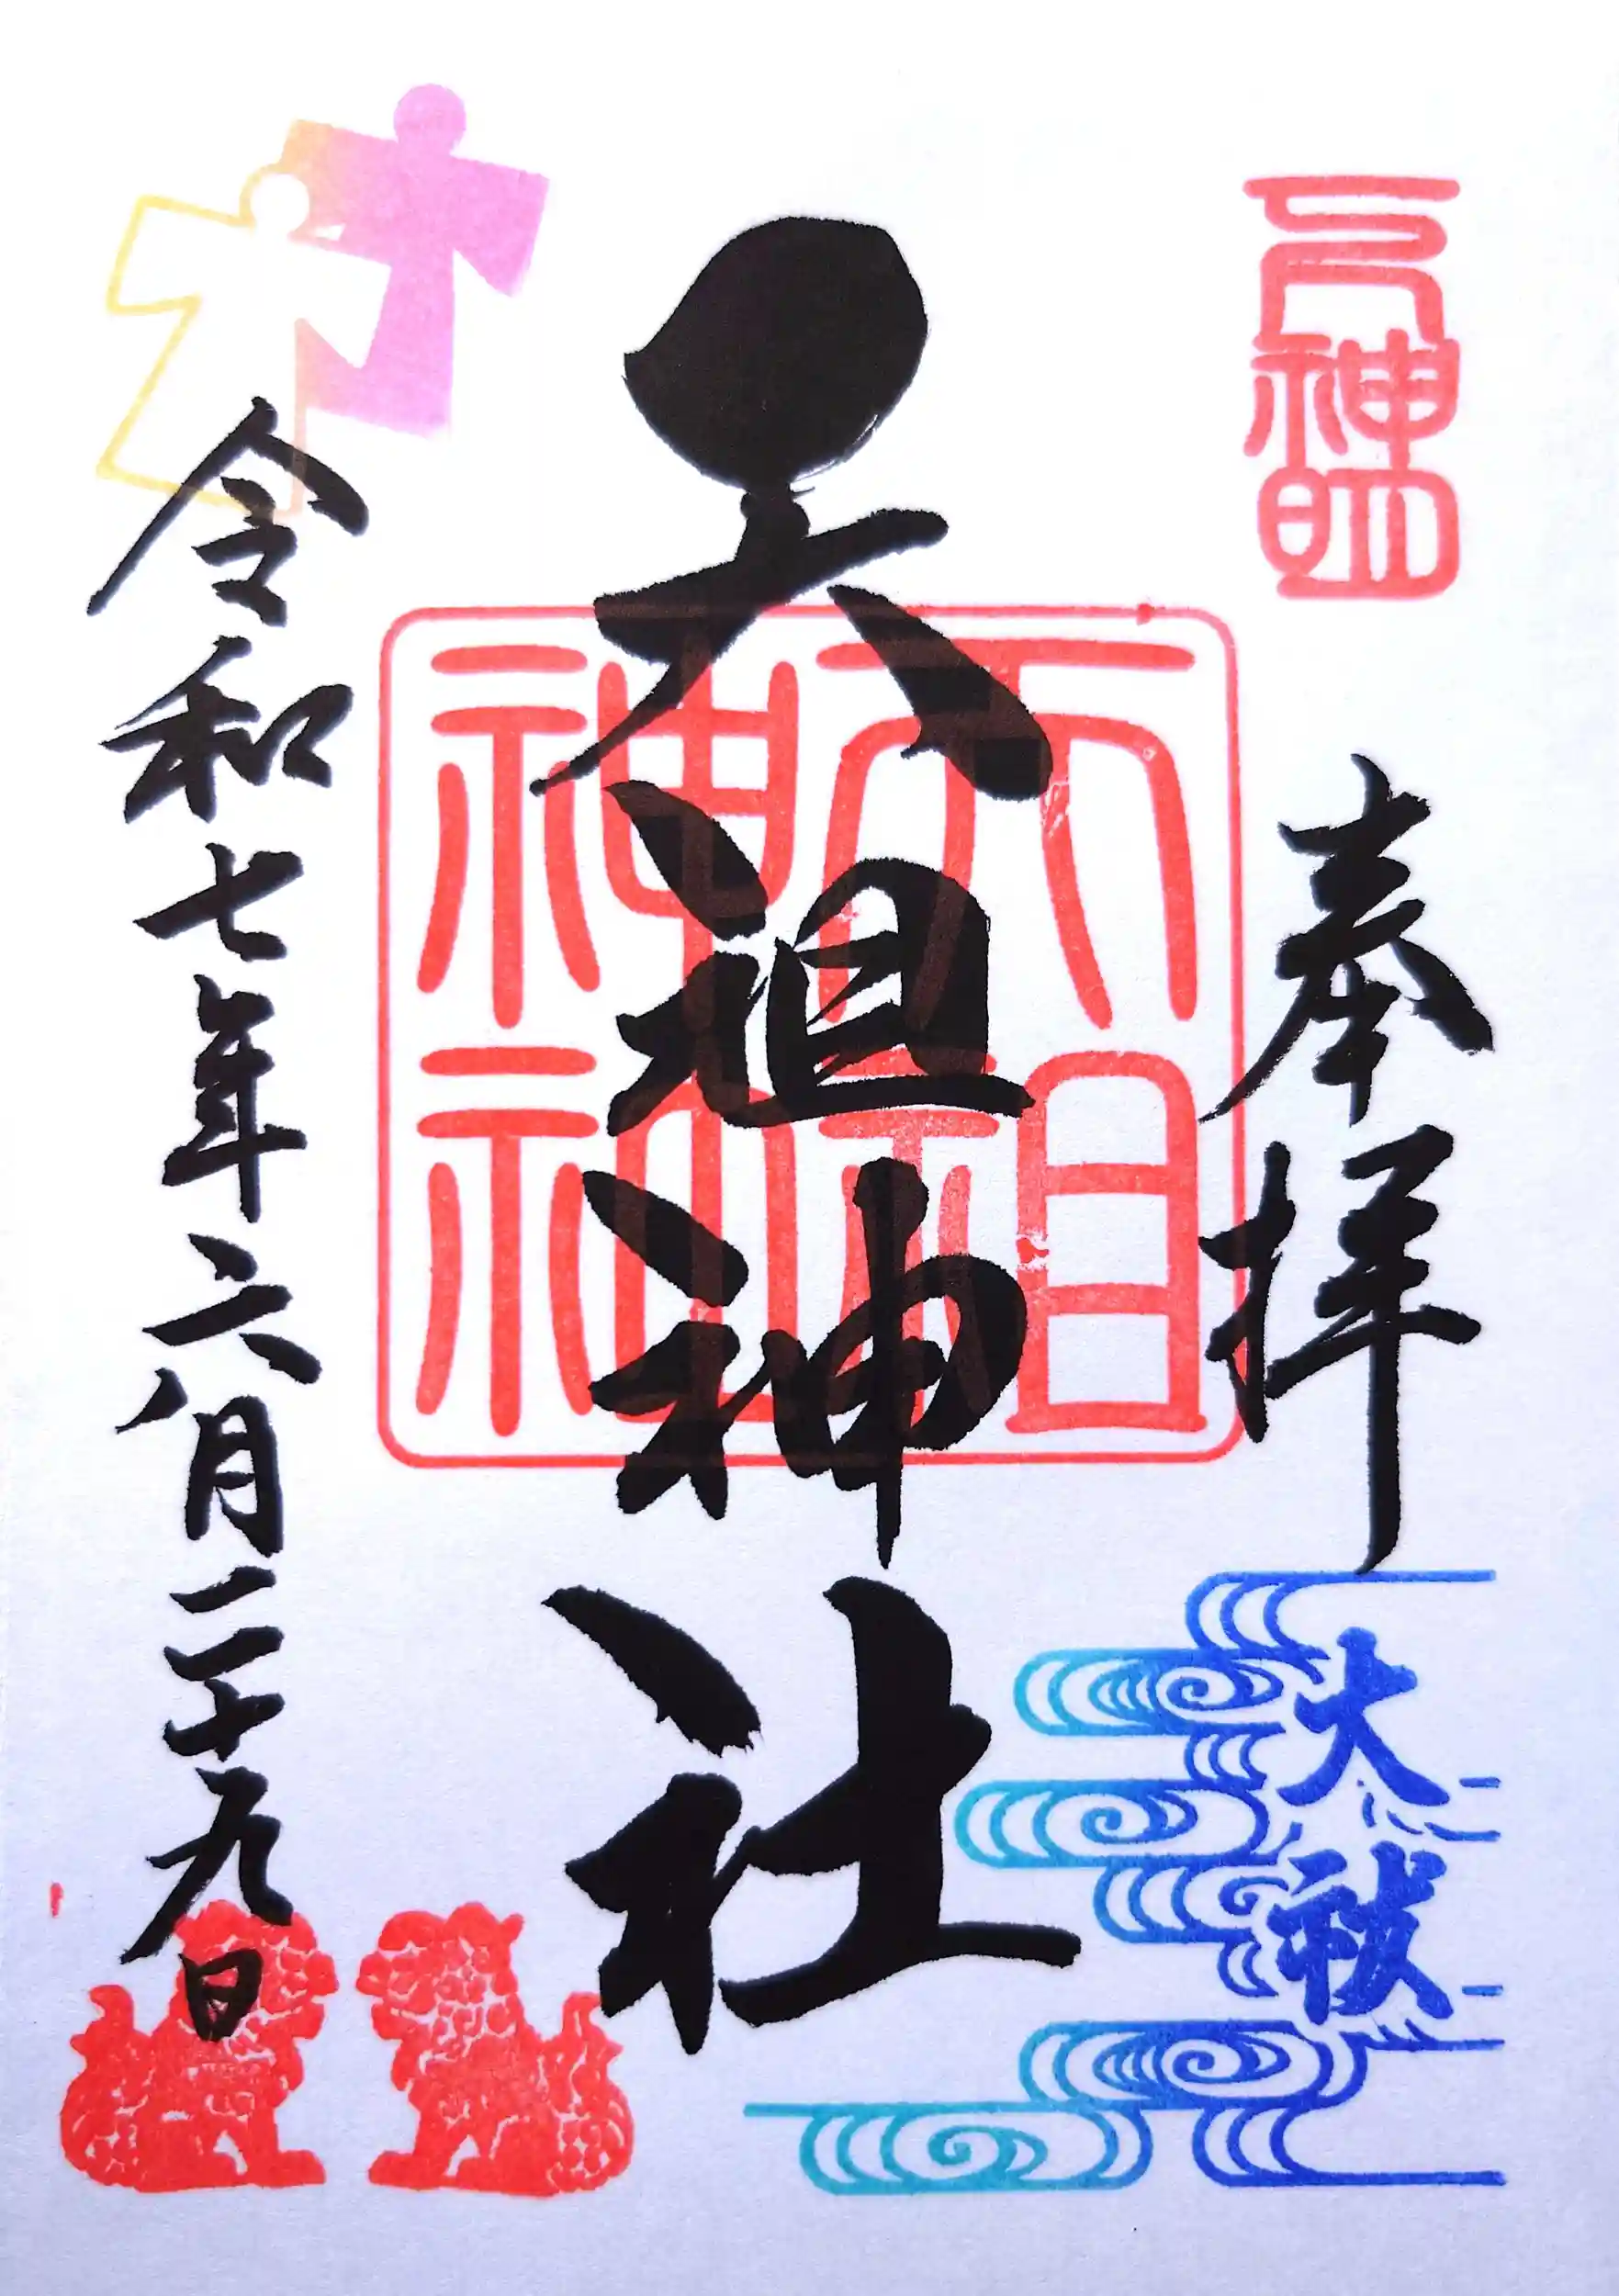 下神明
奉拝
大祓
天祖神社
天祖神社
令和七年六月二十九日